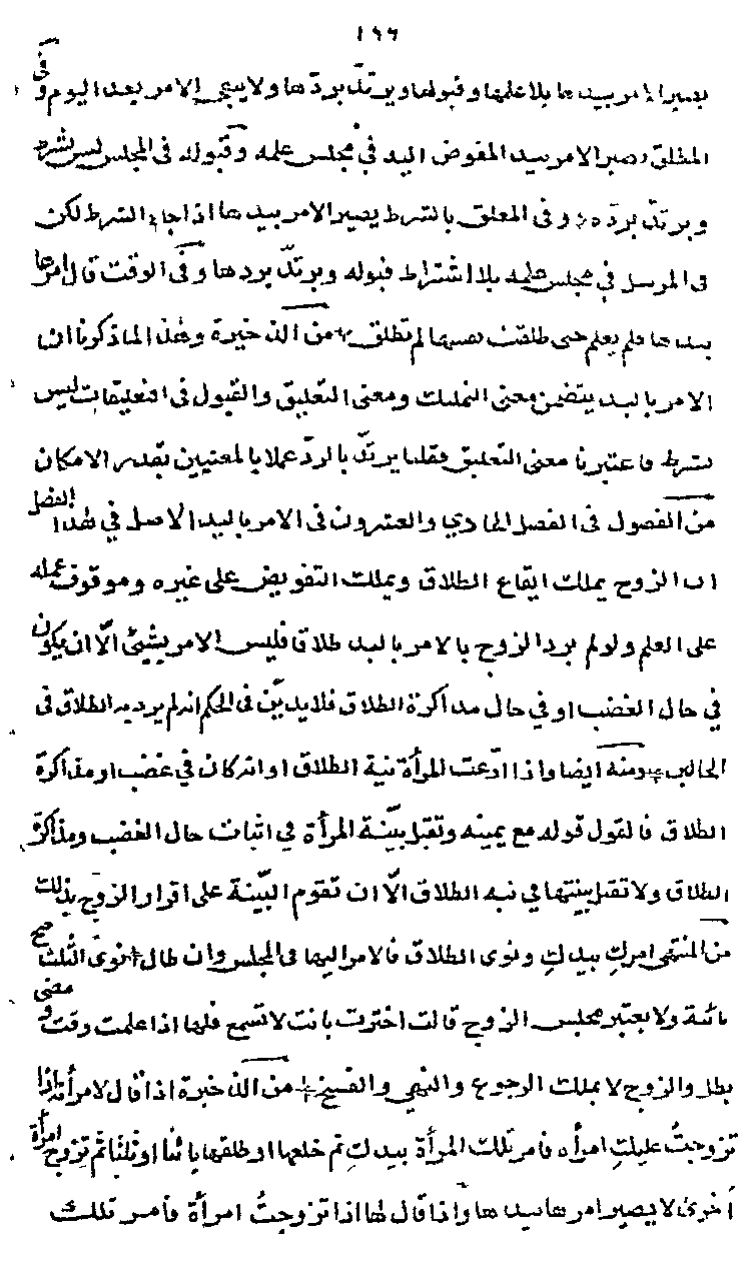 ١٩٦
يصير الامر بيدها بلا علمها وقبولها ويرتدّ بردّها ولا يبقى الامر بعد اليوم وفى
المطلق يصير الامر بيد المفوض اليه في مجلس علمه وقبوله فى المجلس ليس بشرط
ويرتدّ بردّه وفى المعلق بالشرط يصير الامر بيدها اذا جاء الشرط لكن
فى المرسل في مجلس علمه بلا اشتراط قبوله ويرتدّ بردها وفى الوقت قال امرها
بيدها فلم يعلم حتى طلقت نفسها لم تطلق من الذخيرة وهذا لما ذكرنا ان
الامر باليد يتضمن معنى التمليك ومعنى التعليق والقبول فى التعليقات ليس
بشرط فاعتبرنا معنى التعليق فقلنا يرتدّ بالردّ عملا بالمعنيين بقدر الامكان
من الفصول فى الفصل الحادي والعشرون فى الامر باليد الاصل في هذا الفصل
ان الزوج يملك ايقاع الطلاق ويملك التفويض على غيره وموقوف عمله
على العلم ولو لم يرد الزوج بالامر باليد طلاقا فليس الامر بشيئ الّا ان يكون
في حال الغضب او في حال مذاكرة الطلاق فلا يديّن فى الحكم انه لم يرد به الطلاق فى
الحالين ومنه ايضا واذا ادّعت المرأة نية الطلاق او انه كان في غضب او مذاكرة
الطلاق فالقول قوله مع يمينه وتقبل بيّنة المرأة في اثبات حال الغضب ومذاكرة
الطلاق ولا تقبل بينتها في نية الطلاق الّا ان تقوم البيّنة على اقرار الزوج بذلك
من المنتقى امركِ بيدكِ ونوى الطلاق فالامر اليها فى المجلس وان طال نوى الثلث صح
بائنة ولا يعتبر مجلس الزوج قالت اخترت بانت لا تسمع فلها اذا علمت وقت مضى و
بطل والزوج لا يملك الرجوع والنهي والفسخ من الذخيرة اذا قال لامرأته اذا
تزوجتُ عليكِ امرأه فامر تلك المرأة بيدكِ ثم خلعها او طلقها بائنا او ثلثا ثم تزوج امرأة
أخرى لا يصير امرها بيدها واذا قال لها اذا تزوجتُ امرأة فامر تلك